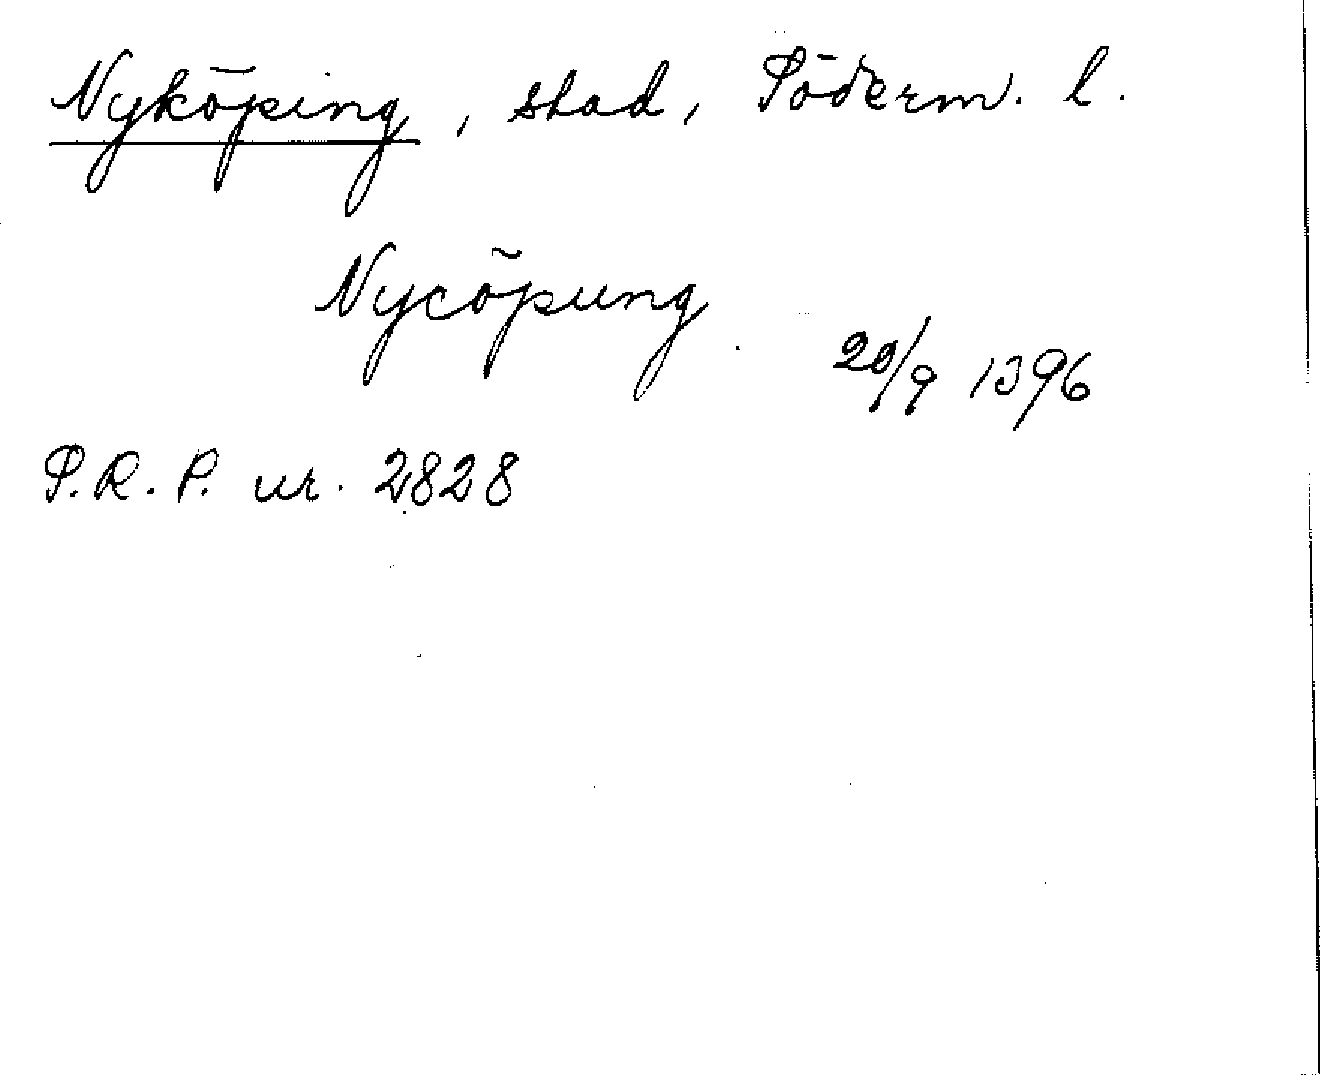 Nyköping, stad, Söderm. l.
Nycöpung
20/9 1396
S.R.P. nr. 2828